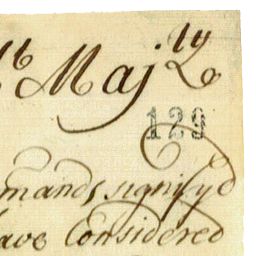 Maj.ty
129
mands signify'd
have Considered